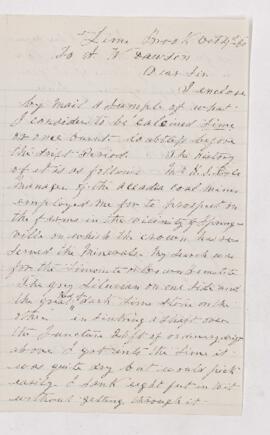 Lime Brook Oct
To J. W. Dawson
Dear Sir
I enclose
by mail a sample of what
I consider to be calcined lime
or one burnt
the Drift Period. The history
of it is as follows Mr
manager of the Acadia coal mine
employed me for to prospect on
the farms in the vicinity of Spring
ville on which the crown has re
served the Minerals. My search was
for the Limonite or brown hematite
The grey Silurian on one side and
the dark lime stone on the
other in sinking a shaft over
the junction ft of ordinary
above I got into the lime it
was quite dry but would pick
easily I sank eight feet in it
without getting through it